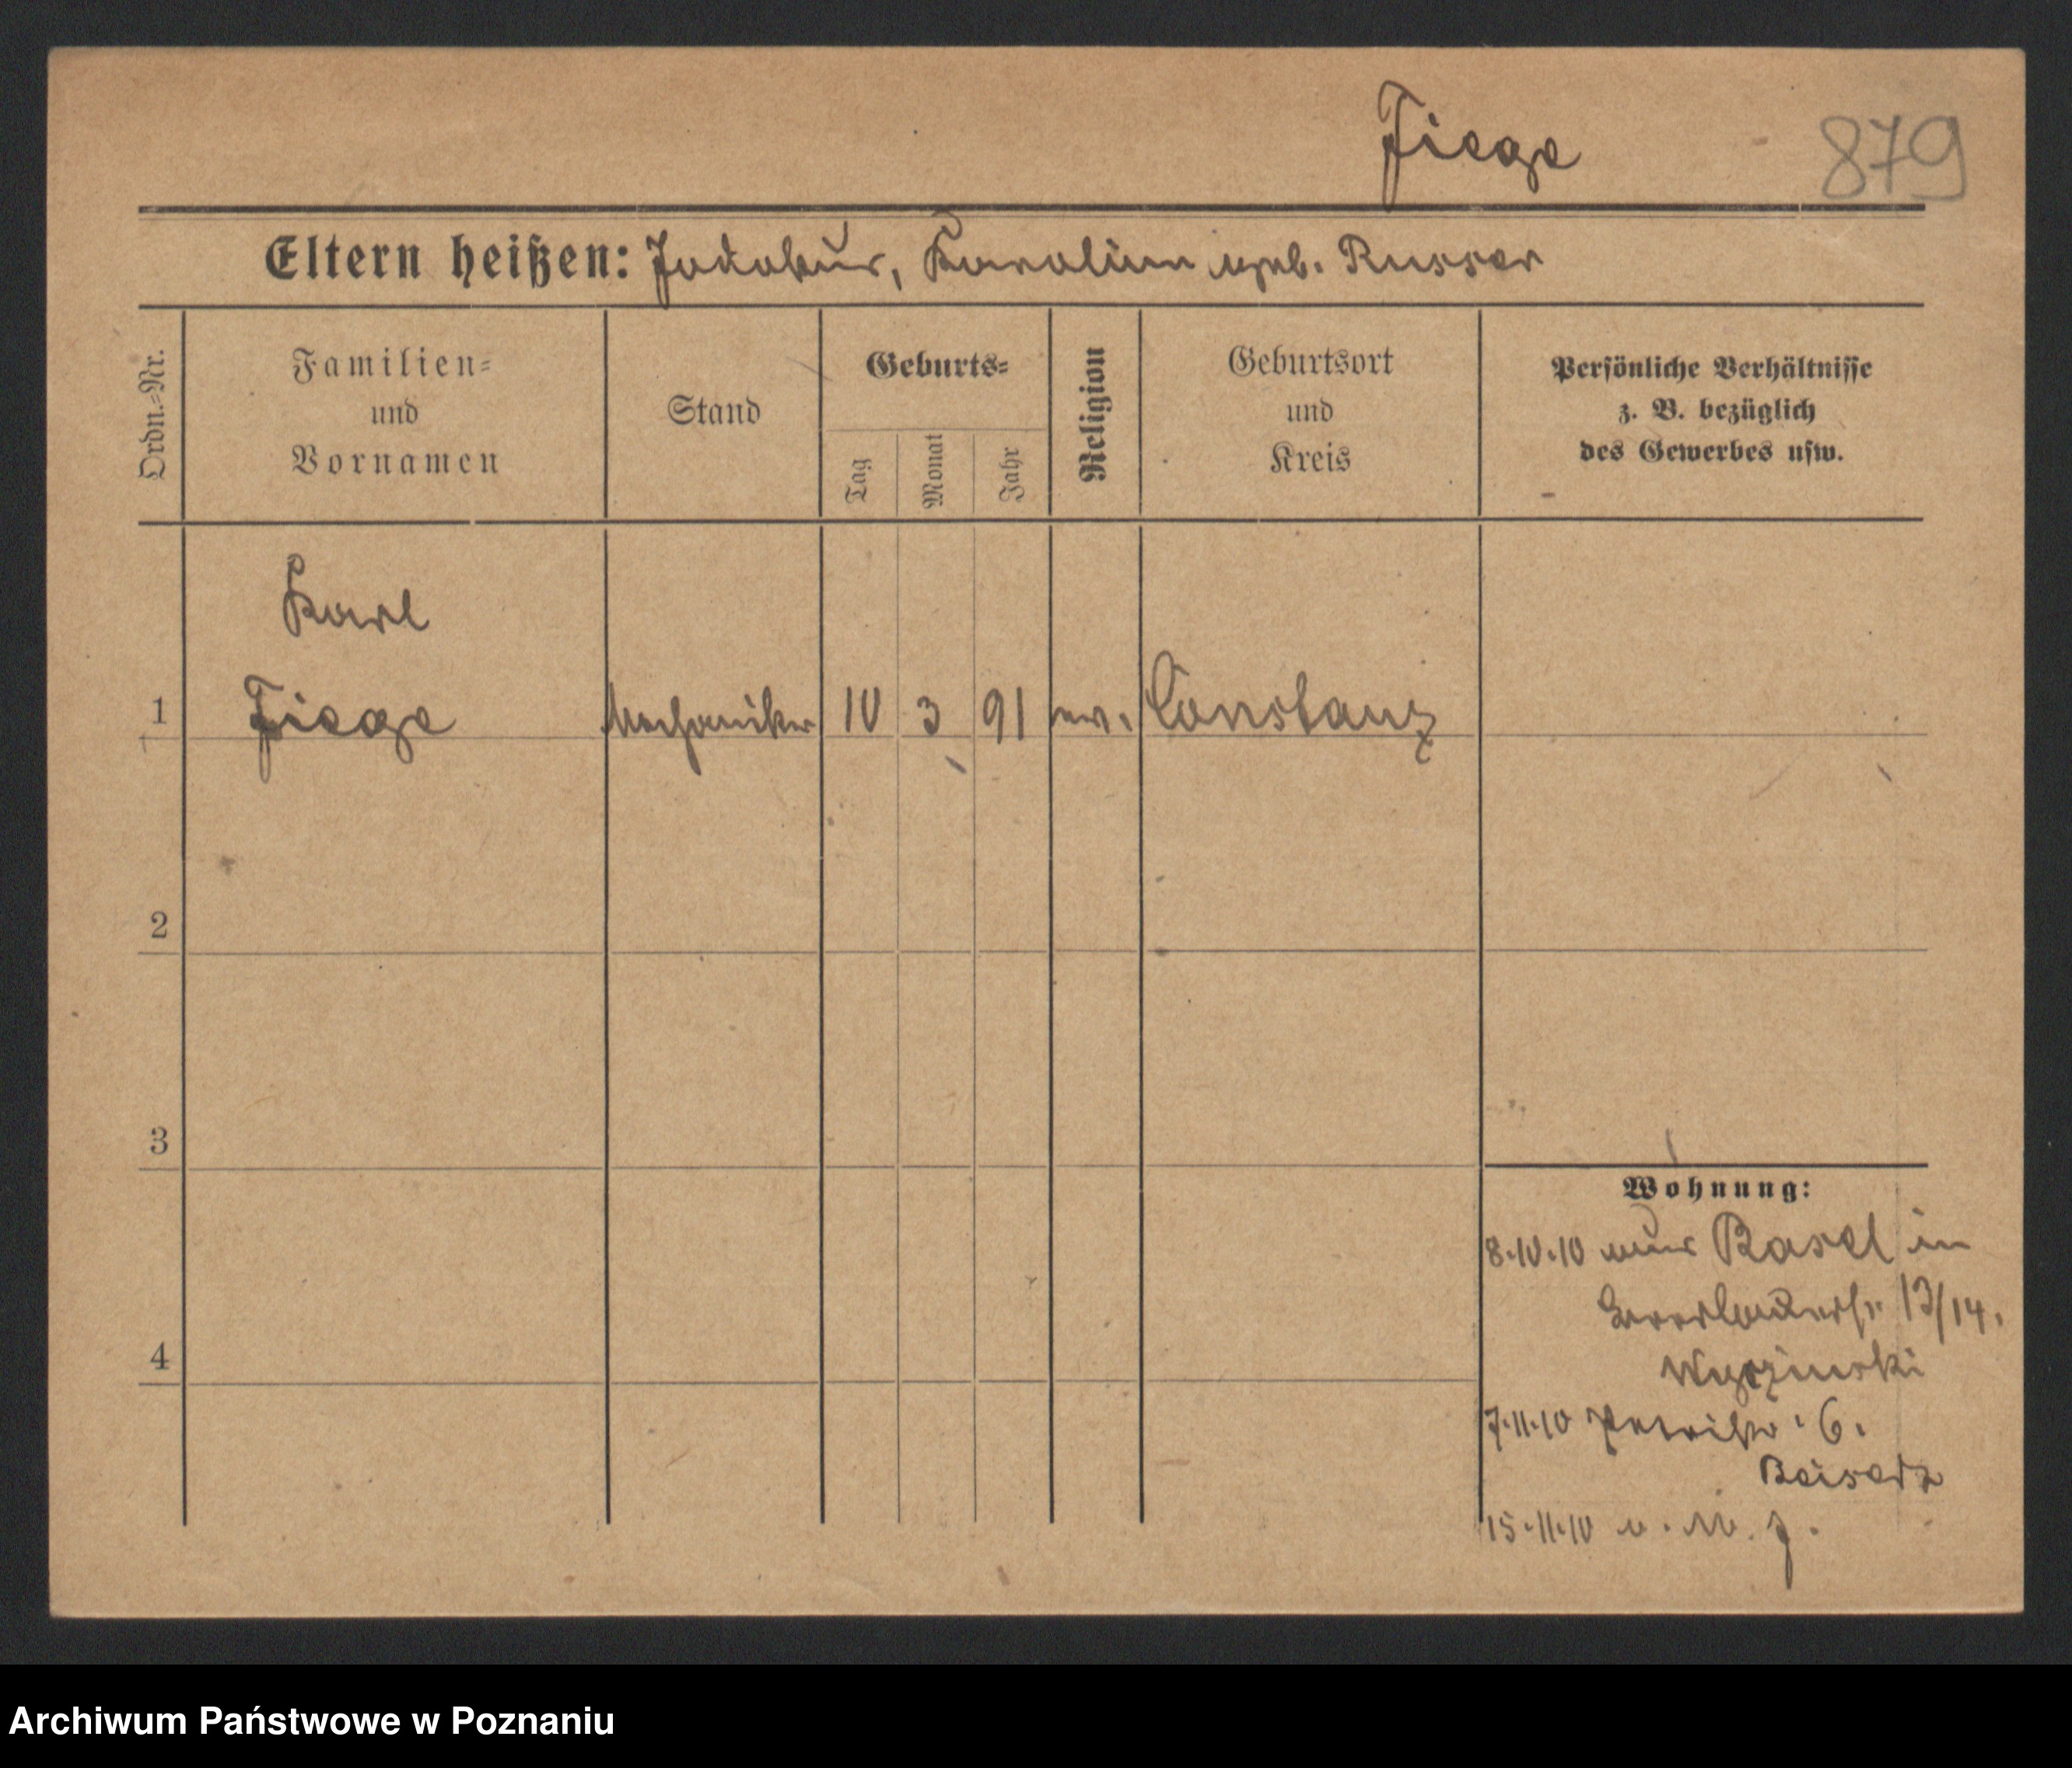 Fiege 879
Eltern heißen: Jakobus, Karoline geb. Russer
Ordn.=Nr.
Familien=
und
Vornamen
Stand
Geburts=
Tag
Monat
Jahr
Religion
Geburtsort
und
Kreis
Persönliche Verhältnisse
z. B. bezüglich
des Gewerbes usw.
Karl
1 Fiege Mechaniker 10 3 91 ev. Constanz
2
3
4
Wohnung:
8.10.10 aus Basel in
13/14.
Wyczinski
7.11.10 6.
15.11.10
Archiwum Państwowe w Poznaniu